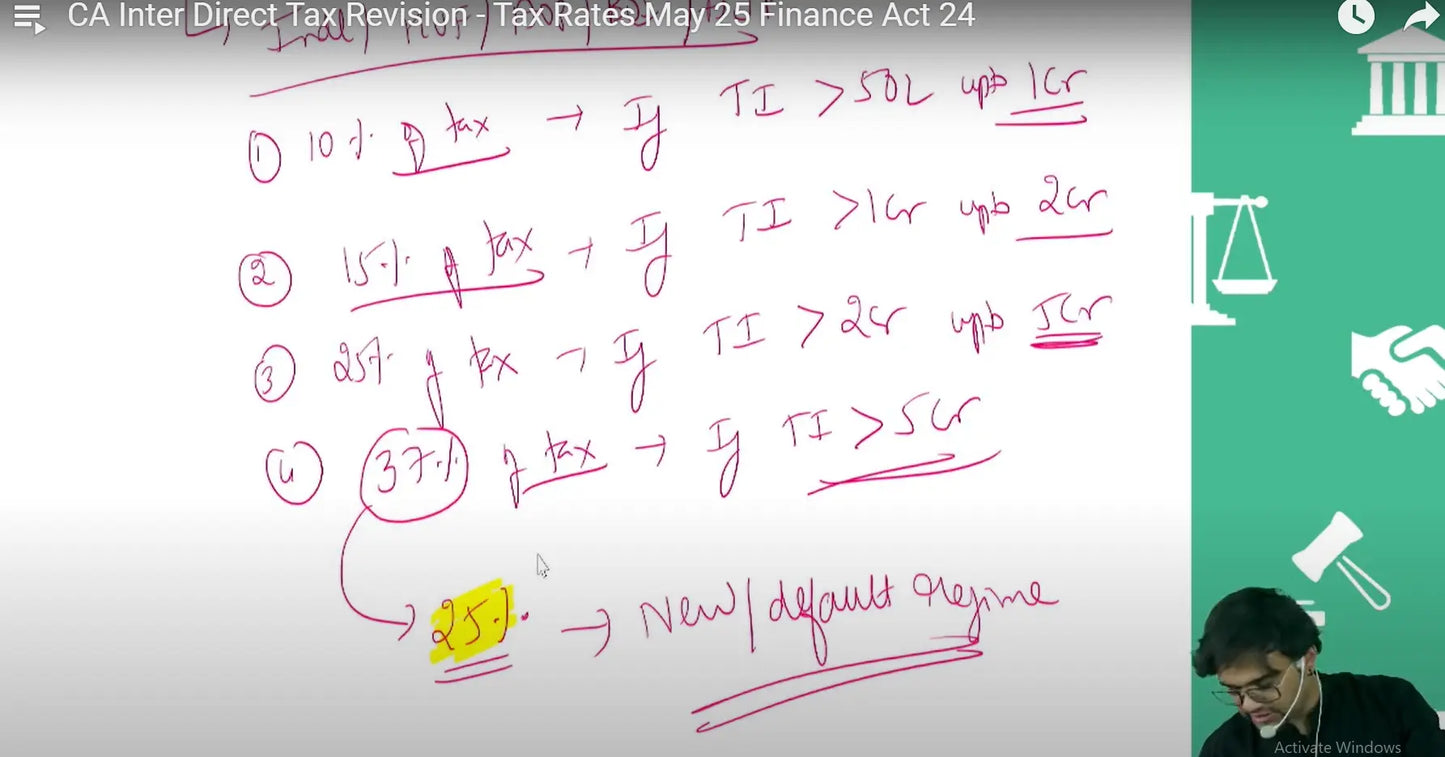 CA Inter Direct Tax Revision - Tax Rates May 25 Finance Act 24
① 10% of tax → If TI > 50L upto 1Cr
② 15% of tax → If TI > 1Cr upto 2Cr
③ 25% of tax → If TI > 2Cr upto 5Cr
④ 37% of tax → If TI > 5Cr
25% → New/default Regime
Activate Windows